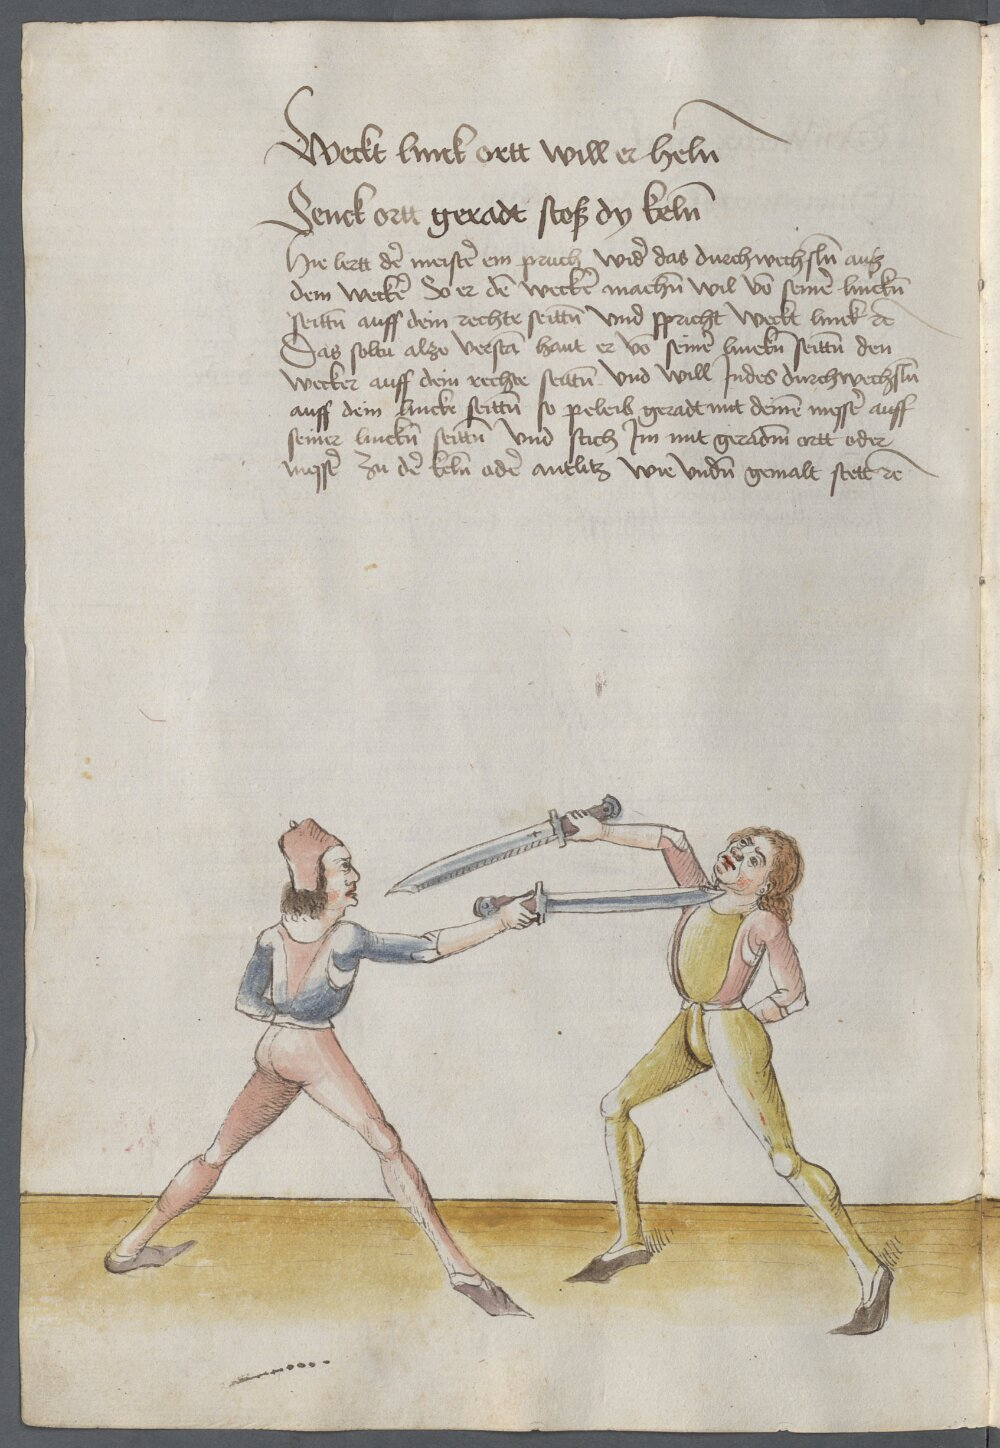 Weckt linck ortt will er heln̄
Senck ortt geradt stoß dy keln̄
Hie lertt de᷑ meiste᷑ ein pruch wid᷑ das durchwechsln̄ auß
dem wecke᷑ So er de᷑ wecke᷑ machn̄ wil vō seine᷑ linckn̄
seittn̄ auff dein rechte seittn̄ vnd spricht weckt linck ꝛc
Das soltu also verstā haut er vō seine᷑ linckn̄ seittn̄ den
wecker auff dein rechte seittn̄ vnd will Indes durchwechsln̄
auff dein lincke seittn̄ so peleib geradt mit deinē messe᷑ auff
seiner linckn̄ seittn̄ vnd stich Im mit geradm̄ ortt oder
messe᷑ zu de᷑ keln̄ ode᷑ antlitz wie vndn̄ gemalt stett ꝛc